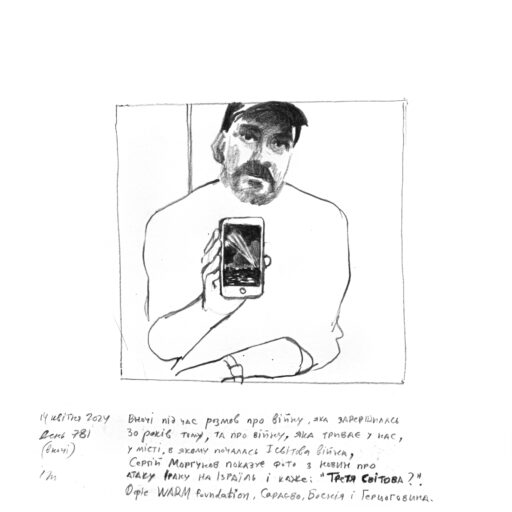 14 квітня 2024
День 781
(вночі)
Вночі під час розмов про війну, яка завершилась
30 років тому, та про війну, яка триває у нас,
у місті, в якому почалась I світова війна,
Сергій Моргунов показує фото з новин про
атаку Ірану на Ізраїль і каже: "Третя світова?".
Офіс WARM foundation, Сараєво, Боснія і Герцоговина.